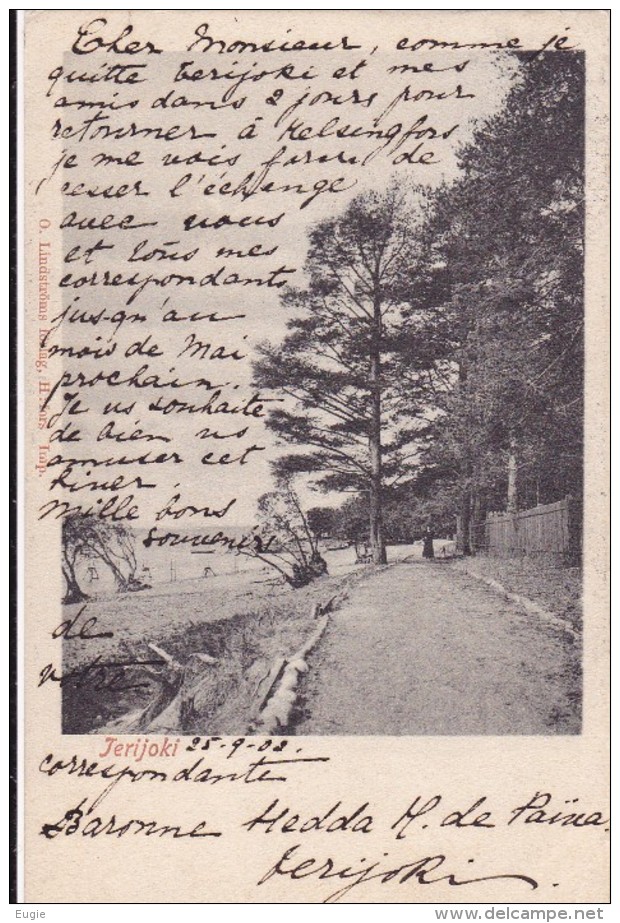 Cher Monsieur, comme je
quitte Terijoki et mes
amis dans 2 jours pour
retourner à Helsingfors
je me vois forcée de
cesser l'échange
avec vous
et tous mes
correspondants
jusqu'au
mois de Mai
prochain.
Je vs souhaite
de bien vs
amuser cet
hiver.
Mille bons
souvenirs
de
votre
Terijoki 25-9-02.
correspondante
Baronne Hedda M. de Païna.
Terijoki.
O. Lindströms Förlag, H:fors, Imp.
Eugie
www.delcampe.net